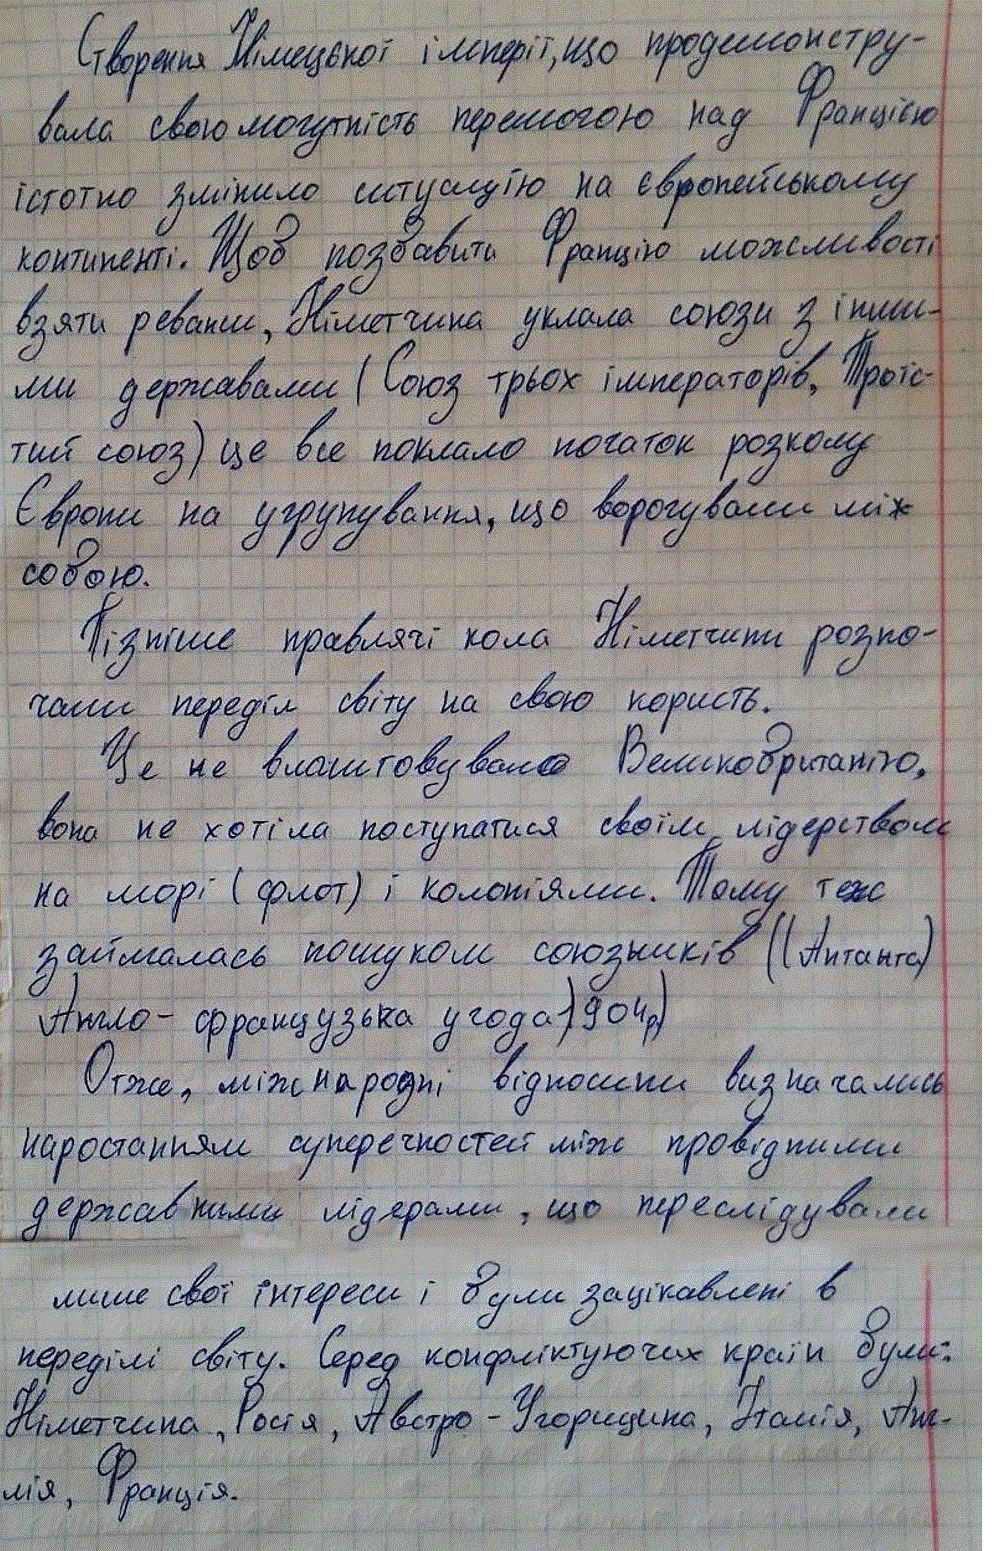 Створення Німецької імперії, що продемонстру-
вала свою могутність перемогою над Францією
істотно змінило ситуацію на європейському
континенті. Щоб позбавити Францію можливості
взяти реванш, Німетчина уклала союзи з інши-
ми державами (Союз трьох імператорів, Троїс-
тий союз) це все поклало початок розколу
Європи на угрупування, що ворогували між
собою.
Пізніше правлячі кола Німетчини розпо-
чали переділ світу на свою користь.
Це не влаштовувало Великобританію,
вона не хотіла поступатися своїм лідерством
на морі (флот) і колоніями. Тому теж
займалась пошуком союзників ((Антанта)
Англо-французька угода 1904р)
Отже, міжнародні відносини визначались
наростанням суперечностей між провідними
державними лідерами, що переслідували
лише свої інтереси і були зацікавлені в
переділі світу. Серед конфліктуючих країн були:
Німетчина, Росія, Австро-Угорщина, Італія, Анг-
лія, Франція.